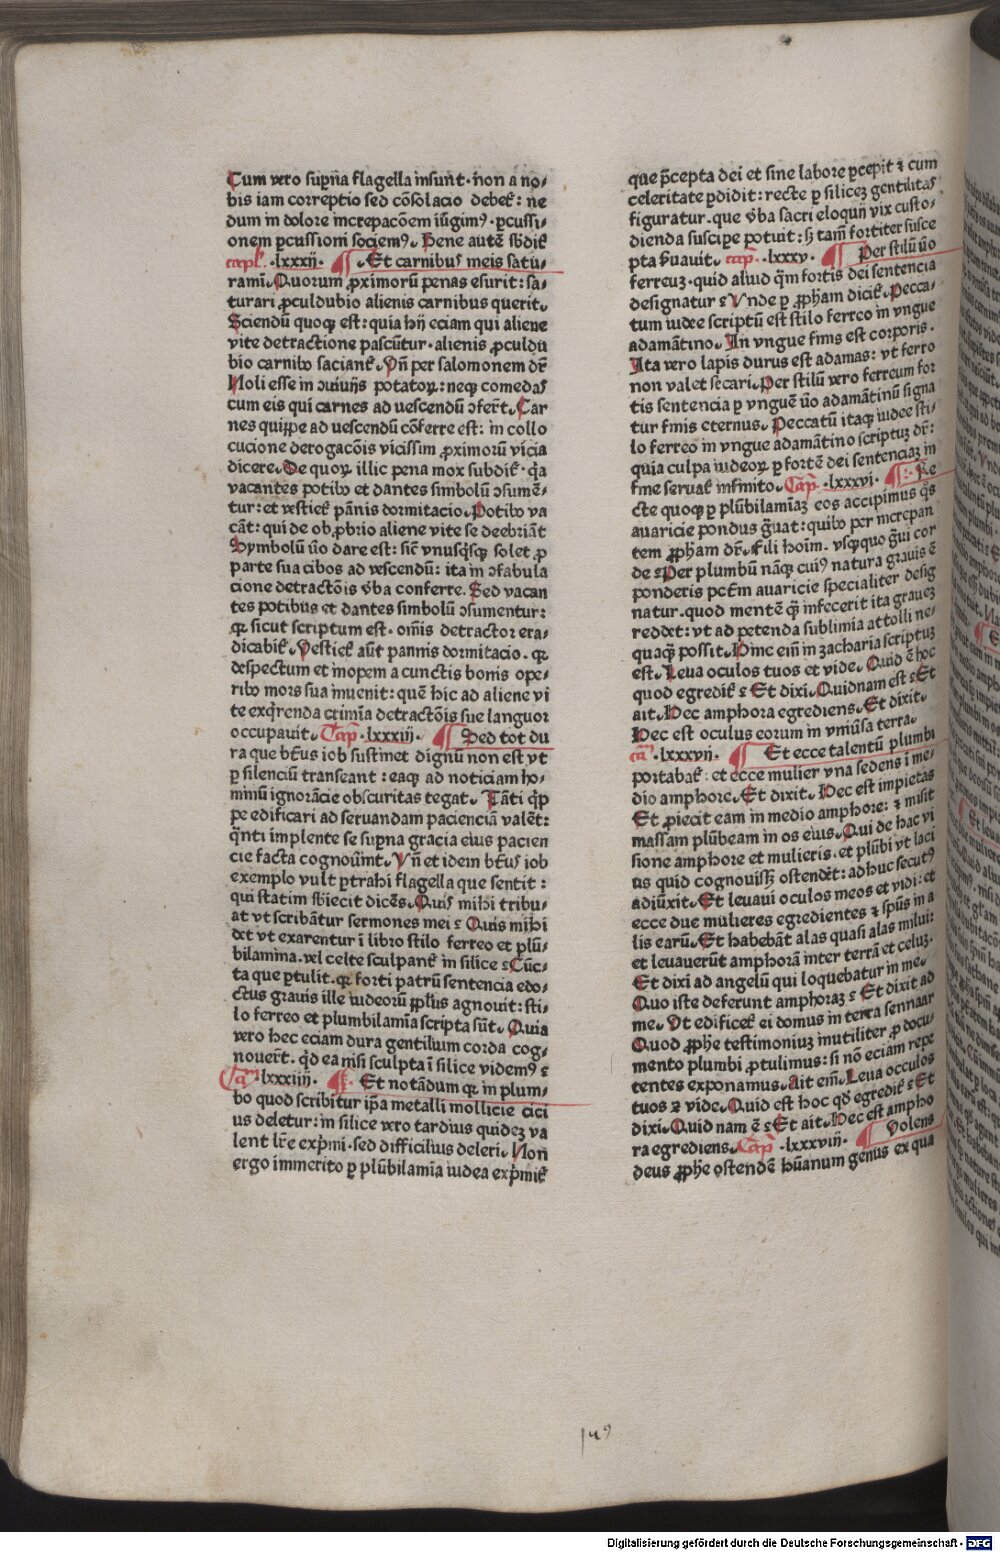 Cum vero suꝑna flagella insunt·non a no⸗
bis iam correptio sed cõsolacio debet: ne
dum in dolore increpacõem iũgimꝰ·ꝑcussi⸗
onem ꝑcussioni sociemꝰ. Bene autẽ sbdit
capl̃.·lxxxij.¶.Et carnibus meis satu⸗
rami. Quorum ꝓximorũ penas esurit: sa⸗
turari ꝓculdubio alienis carnibus querit.
Sciendũ quoqꝫ est: quia hij eciam qui aliene
vite detractione pascũtur·alienis ꝓculdu
bio carnibꝰ saciant. Vñ per salomonem dr̃
Noli esse in ↄuiuijs potatoꝝ: neqꝫ comedas
cum eis qui carnes ad uescendũ ↄfert. Car
nes quippe ad uescendũ cõferre est: in collo
cucione derogacõis vicissim ꝓximorũ vicia
dicere. De quoꝝ illic pena mox subdit·q̃a
vacantes potibꝰ et dantes simbolũ ↄsumẽ⸗
tur: et vestiet pãnis dormitacio. Potibꝰ va
cãt: qui de obꝓbrio aliene vite se debriãt
Symbolũ ṽo dare est: sic̃ vnusq̃sqꝫ solet ꝓ
parte sua cibos ad vescendũ: ita in ↄfabula
cione detractõis ṽba conferre. Sed vacan
tes potibus et dantes simbolũ ↄsumentur:
qꝛ sicut scriptum est·om̃is detractor era⸗
dicabit. Vestiet aũt pannis dormitacio·qꝛ
despectum et inopem a cunctis bonis ope⸗
ribꝰ mors sua inuenit: quẽ hic ad aliene vi
te exq̃renda crimĩa detractõis sue languor
occupauit. Cap̃.·lxxxiij.¶ Sed tot du
ra que btũs iob sustinet dignũ non est vt
ꝑ silenciũ transeant: eaqꝫ ad noticiam ho⸗
minũ ignorãcie obscuritas tegat. Tãti q̃ꝑ
pe edificari ad seruandam pacienciã valẽt:
q̃nti implente se suꝑna gracia eius pacien
cie facta cognoũint. Vñ et idem btũs iob
exemplo vult ꝑtrahi flagella que sentit:
qui statim sbiecit dicẽs. Quis mihi tribu⸗
at vt scribãtur sermones mei ⸮ Quis mihi
det vt exarentur ĩ libro stilo ferreo et plũ⸗
bilamina·vel celte sculpant in silice ⸮ Cũc⸗
ta que ꝑtulit·qꝛ forti patrũ sentencia edo⸗
ctus grauis ille iudeorũ ꝓpĩus agnouit: sti⸗
lo ferreo et plumbilamĩa scripta sũt. Quia
vero hec eciam dura gentilium corda cog⸗
nouert̃·q̃d ea nisi sculpta ĩ silice videmꝰ ⸮
Ca᷑ ·lxxxiiij.¶. Et notãdum qꝛ in plum⸗
bo quod scribitur ip̃a metalli mollicie cici
us deletur: in silice vero tardius quidez va
lent lr̃e exp̃mi·sed difficilius deleri. Non
ergo immerito ꝑ plũbilamĩa iudea exp̃mit
que p̃cepta dei et sine labore ꝑcepit ⁊ cum
celeritate ꝑdidit: recte ꝑ silicez gentilitas
figuratur·que ṽba sacri eloquij vix custo⸗
dienda suscipe potuit: sꝫ tam̃ fortiter susce
pta s̃uauit. cap̃.·lxxxv.¶ Per stilũ ṽo
ferreuz·quid aliud q̃m fortis dei sentencia
designatur ⸮ Vnde ꝑ ꝓpham dicit. Pecca⸗
tum iudee scriptũ est stilo ferreo in vngue
adamãtino. In vngue finis est corporis·
Ita vero lapis durus est adamas: vt ferro
non valet secari. Per stilũ vero ferreum for
tis sentencia ꝑ vnguẽ ṽo adamãtinũ signa
tur finis eternus. Peccatũ itaqꝫ iudee sti⸗
lo ferreo in vngue adamãtino scriptuz dr̃:
quia culpa iudeoꝝ ꝑ fortẽ dei sentenciaz in
fine seruat infinito. Cap̃.·lxxxvi.¶. Re
cte quoqꝫ ꝑ plũbilamĩaz eos accipimus q̃s
auaricie pondus g̃uat: quibꝰ per increpan
tem ꝓpham dr̃. Fili hoĩm·vsqꝫquo g̃ui cor
de ⸮ Per plumbũ nãqꝫ cuiꝰ natura grauis ẽ
ponderis pctm̃ auaricie specialiter desig
natur·quod mentẽ q̃m infecerit ita grauez
reddet: vt ad petenda sublimia attolli ne⸗
quaqꝫ possit. Hinc eim̃ in zacharia scriptuz
est. Leua oculos tuos et vide. Quid ẽ hoc
quod egredit ⸮ Et dixi. Quidnam est ⸮ Et
ait. Hec amphora egrediens. Et dixit.
Hec est oculus eorum in vniũsa terra.
ca᷑ ·lxxxvij.¶ Et ecce talentũ plumbi
portabat: et ecce mulier vna sedens ĩ me⸗
dio amphore. Et dixit. Hec est impietas
Et ꝓiecit eam in medio amphore: ⁊ misit
massam plũbeam in os eius. Qui de hac vi
sione amphore et mulieris·et plũbi vt laci
us quid cognouissꝫ ostendẽt: adhuc secutꝰ
adiũxit. Et leuaui oculos meos et vidi: et
ecce due mulieres egredientes ⁊ spũs in a
lis earũ. Et habebãt alas quasi alas milui:
et leuauerũt amphorã inter terrã et celuz.
Et dixi ad angelũ qui loquebatur in me.
Quo iste deferunt amphoraz ⸮ Et dixit ad
me. Vt edificet ei domus in terra sennaar
Quod ꝓphe testimoniuz inutiliter ꝓ docu⸗
mento plumbi ꝓtulimus: si nõ eciam repe
tentes exponamus. Ait eim̃. Leua occulos
tuos ⁊ vide. Quid est hoc qd̃ egredit ⸮ Et
dixi. Quid nam ẽ ⸮ Et ait. Hec est ampho
ra egrediens. Cap̃.·lxxxviij.¶ Volens
deus ꝓphe ostendẽ hũanum genus ex qua